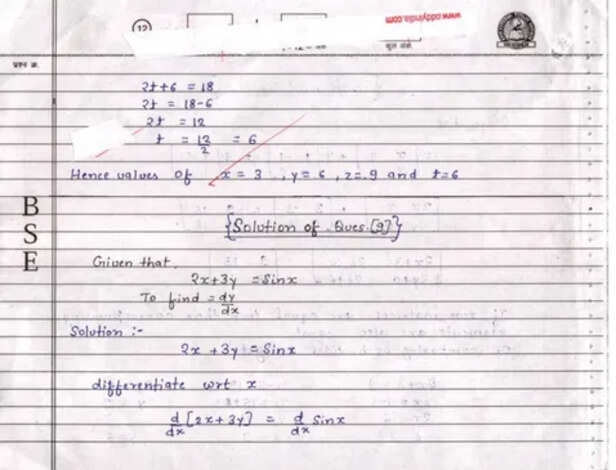 12
www.oddyindia.com
प्रश्न क्र.
2t+6 = 18
2t = 18-6
2t = 12
t = 12/2 = 6
Hence values of x = 3 , y = 6 , z = 9 and t=6
BSE
{Solution of Ques.[9]}
Given that,
2x+3y = Sinx
To find = dy/dx
Solution :-
2x +3y = Sinx
differentiate wrt x
d/dx [2x+3y] = d/dx Sinx